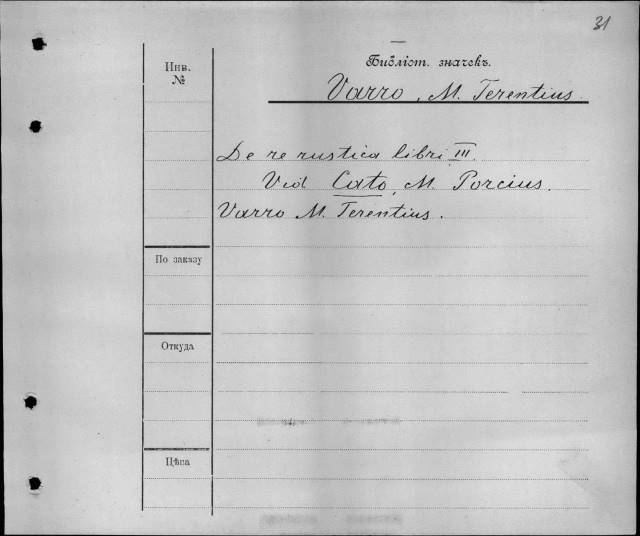 31
Библіот. значекъ.
Инв.
№
Varro, M. Terentius.
De re rustica libri III.
Vid Cato, M. Porcius.
Varro M. Terentius.
По заказу
Откуда
Цѣна